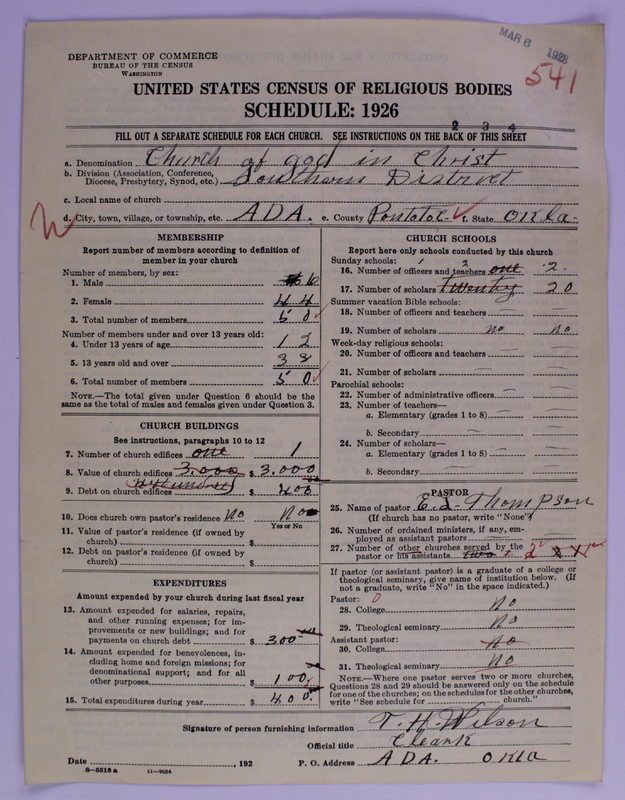 MAR 6 1928
541
DEPARTMENT OF COMMERCE
BUREAU OF THE CENSUS
WASHINGTON
UNITED STATES CENSUS OF RELIGIOUS BODIES
SCHEDULE: 1926
2 3 4
FILL OUT A SEPARATE SCHEDULE FOR EACH CHURCH. SEE INSTRUCTIONS ON THE BACK OF THIS SHEET
a. Denomination Church of god in Christ
b. Division (Association, Conference,
Diocese, Presbytery, Synod, etc.) Southern District
c. Local name of church
d. City, town, village, or township, etc. ADA. e. County Pontotoc f. State OKla-
MEMBERSHIP
Report number of members according to definition of
member in your church
Number of members, by sex:
1. Male 6
2. Female 44
3. Total number of members 50
Number of members under and over 13 years old:
4. Under 13 years of age 12
5. 13 years old and over 38
6. Total number of members 50
NOTE.—The total given under Question 6 should be the
same as the total of males and females given under Question 3.
CHURCH BUILDINGS
See instructions, paragraphs 10 to 12
7. Number of church edifices one 1
8. Value of church edifices 3.000 $ 3.000
9. Debt on church edifices $ 400
10. Does church own pastor's residence No No
Yes or No
11. Value of pastor's residence (if owned by
church) $
12. Debt on pastor's residence (if owned by
church) $
EXPENDITURES
Amount expended by your church during last fiscal year
13. Amount expended for salaries, repairs,
and other running expenses; for im-
provements or new buildings; and for
payments on church debt $ 300
14. Amount expended for benevolences, in-
cluding home and foreign missions; for
denominational support; and for all
other purposes $ 100
15. Total expenditures during year $ 400
CHURCH SCHOOLS
Report here only schools conducted by this church
Sunday schools:
16. Number of officers and teachers one 2
17. Number of scholars twenty 20
Summer vacation Bible schools:
18. Number of officers and teachers —
19. Number of scholars no no
Week-day religious schools:
20. Number of officers and teachers —
21. Number of scholars —
Parochial schools:
22. Number of administrative officers —
23. Number of teachers—
a. Elementary (grades 1 to 8) —
b. Secondary —
24. Number of scholars—
a. Elementary (grades 1 to 8) —
b. Secondary —
PASTOR
25. Name of pastor Thompson
(If church has no pastor, write "None")
26. Number of ordained ministers, if any, em-
ployed as assistant pastors
27. Number of other churches served by the
pastor or his assistants two 2
If pastor (or assistant pastor) is a graduate of a college or
theological seminary, give name of institution below. (If
not a graduate, write "No" in the space indicated.)
Pastor:
28. College No
29. Theological seminary No
Assistant pastor:
30. College No
31. Theological seminary No
NOTE.—Where one pastor serves two or more churches,
Questions 28 and 29 should be answered only on the schedule
for one of the churches; on the schedules for the other churches,
write "See schedule for church."
Signature of person furnishing information T. H. Wilson
Official title Cleark
Date , 192 P. O. Address ADA. OKla
8—5518 a 11—9034